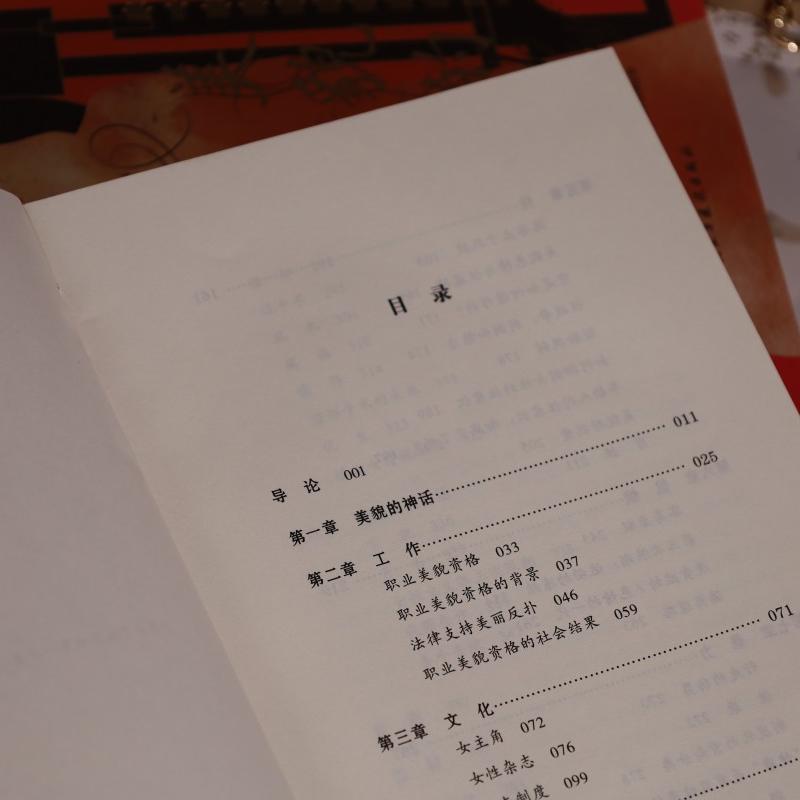 目 录
导 论 001
第一章 美貌的神话 011
第二章 工 作 025
职业美貌资格 033
职业美貌资格的背景 037
法律支持美丽反扑 046
职业美貌资格的社会结果 059
第三章 文 化 071
女主角 072
女性杂志 076
制度 099